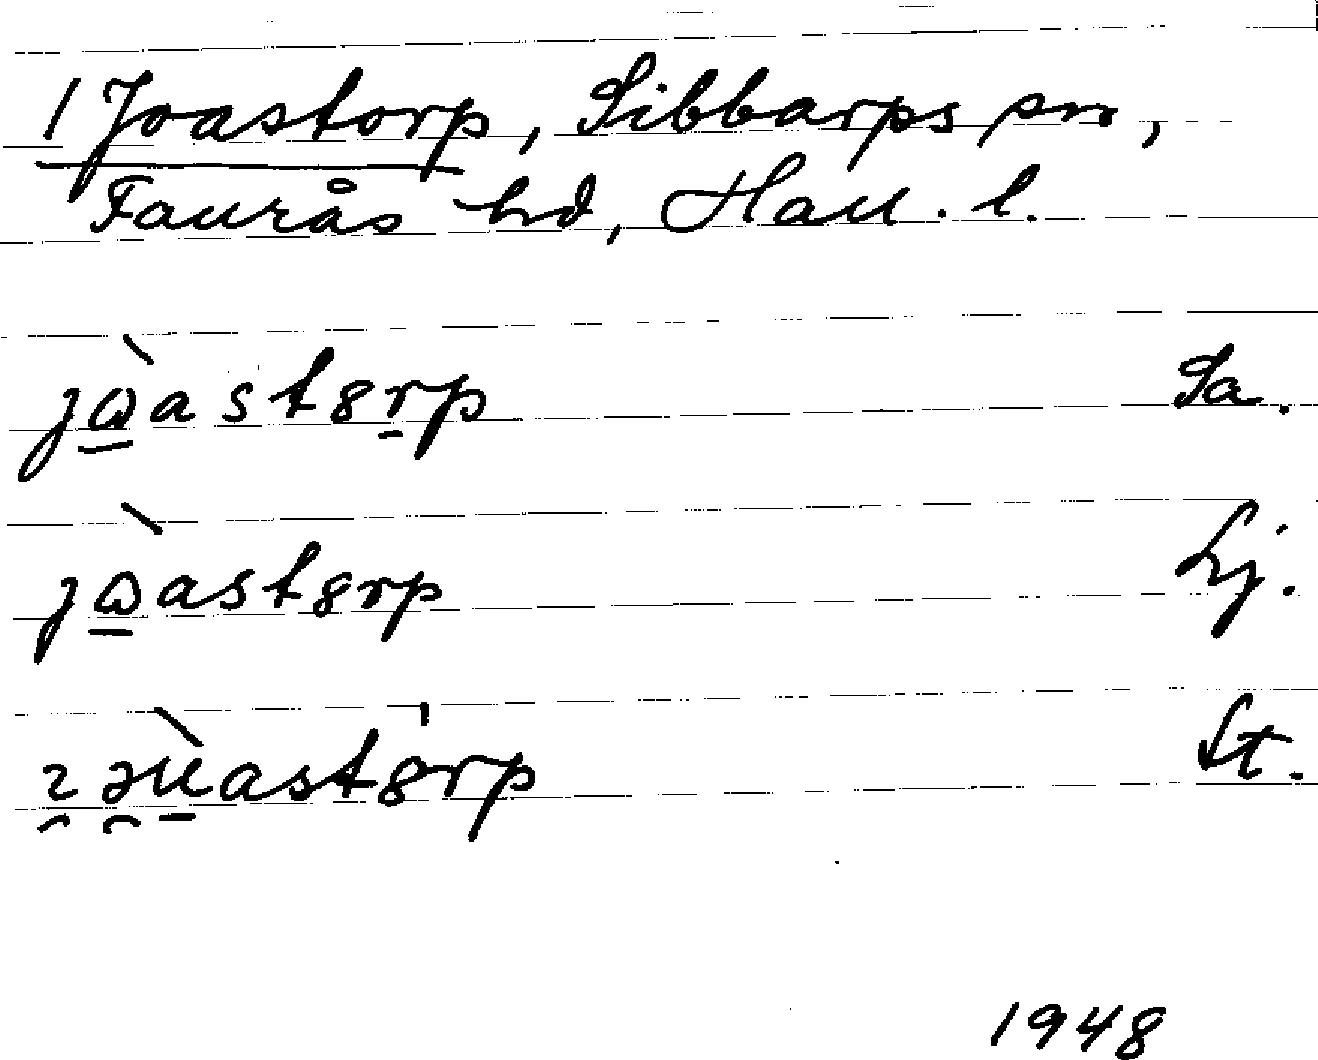 1 Joastorp, Sibbarps sn,
Faurås hd, Hall. l.
jɷ̀astȣrp Sa.
jɷ̀astȣrp Lj.
ɿəùastȣ'rp St.
1948